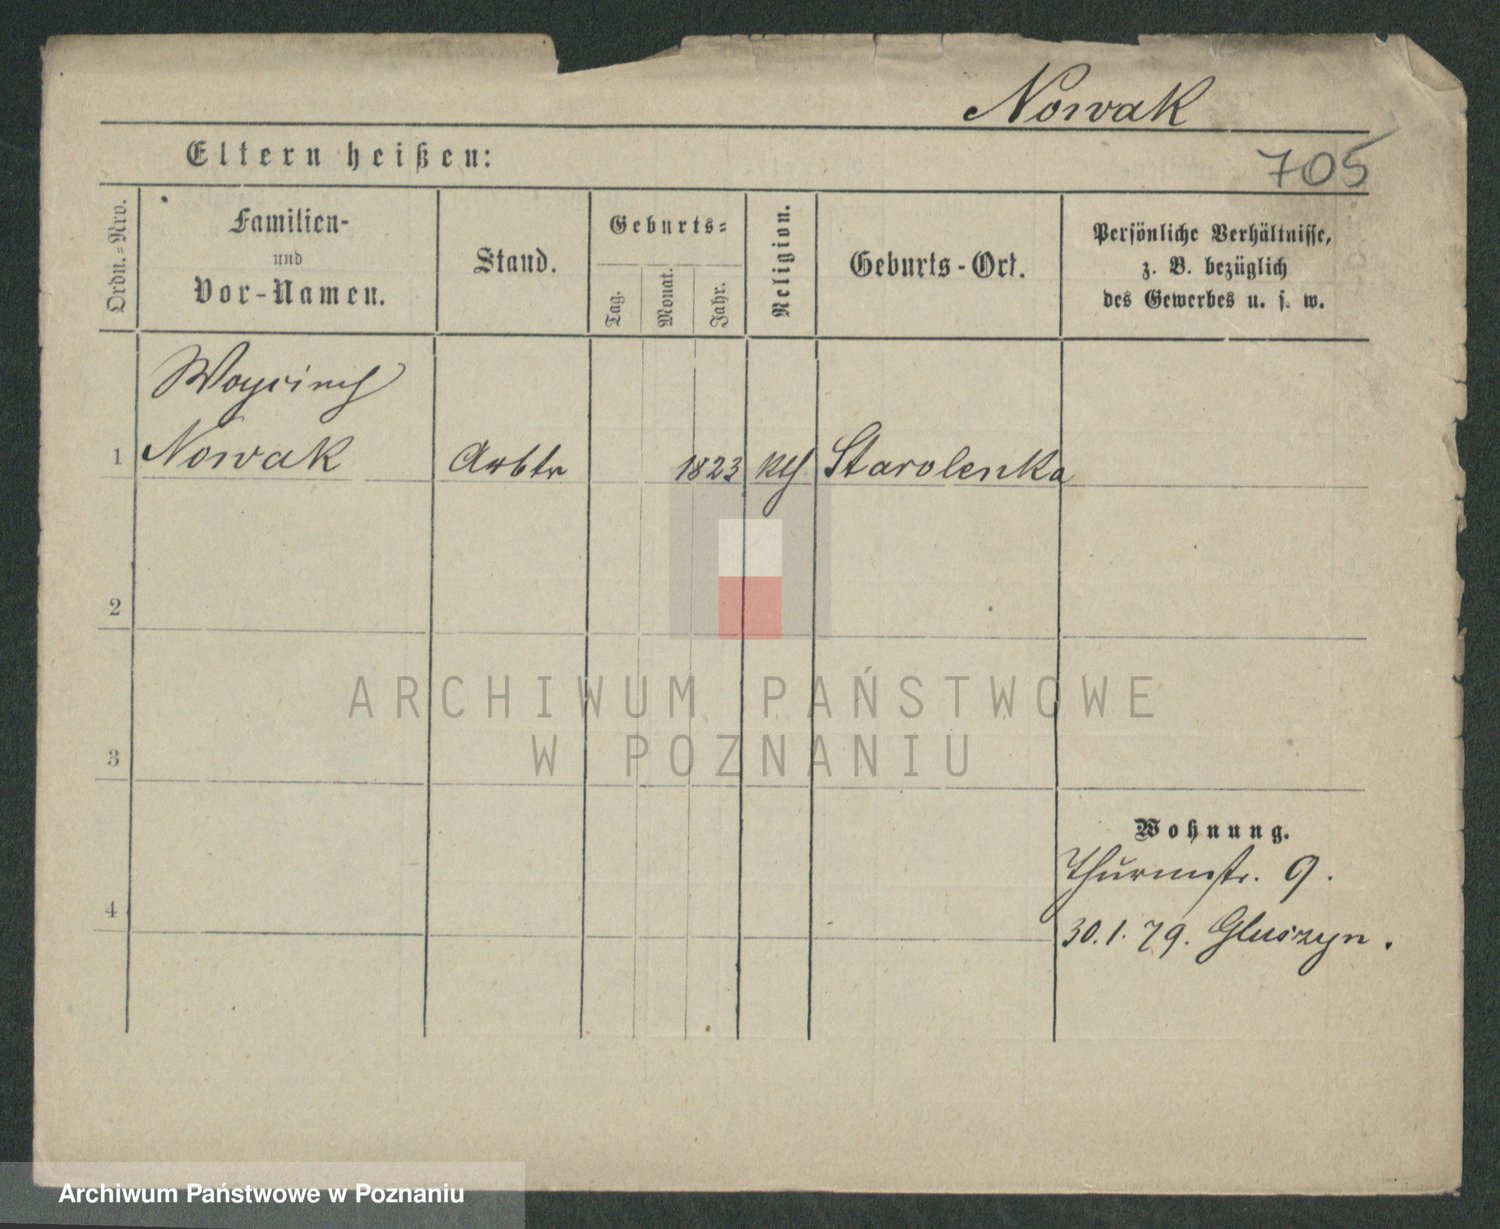 Nowak
Eltern heißen:
705
Ordn.-Nro.
Familien-
und
Vor-Namen.
Stand.
Geburts-
Tag.
Monat.
Jahr.
Religion.
Geburts-Ort.
Persönliche Verhältnisse,
z. B. bezüglich
des Gewerbes u. s. w.
Woyciech
1 Nowak Arbtr 1823 kth Starolenka
2
ARCHIWUM PAŃSTWOWE
W POZNANIU
3
Wohnung.
Thurmstr. 9.
4
30.1.79. Gluszyn.
Archiwum Państwowe w Poznaniu